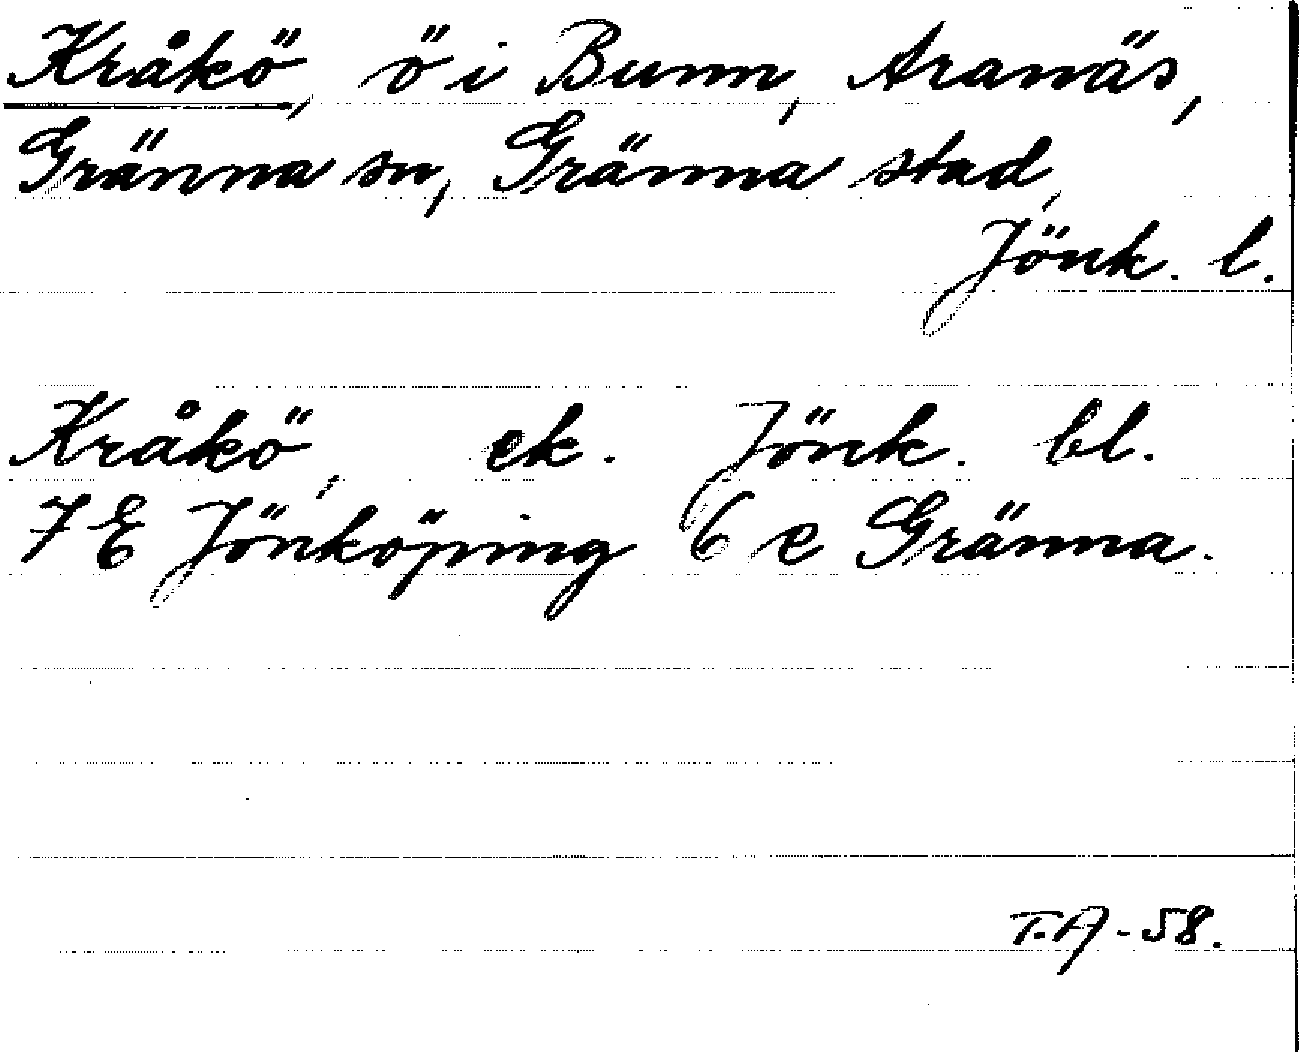 Kråkö, ö i Bunn, Aranäs,
Gränna sn, Gränna stad,
Jönk. l.
Kråkö, ek. Jönk. bl.
7 E Jönköping 6 e Gränna.
T.A-58.